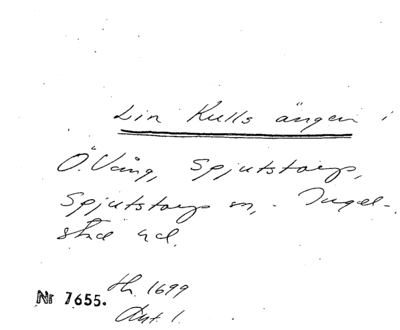 Lin Kulls ängen i
Ö. Vång, Spjutstorp,
Spjutstorp sn, Ingel-
stad hd.
Nr 7655. th. 1699
Avt. 1.